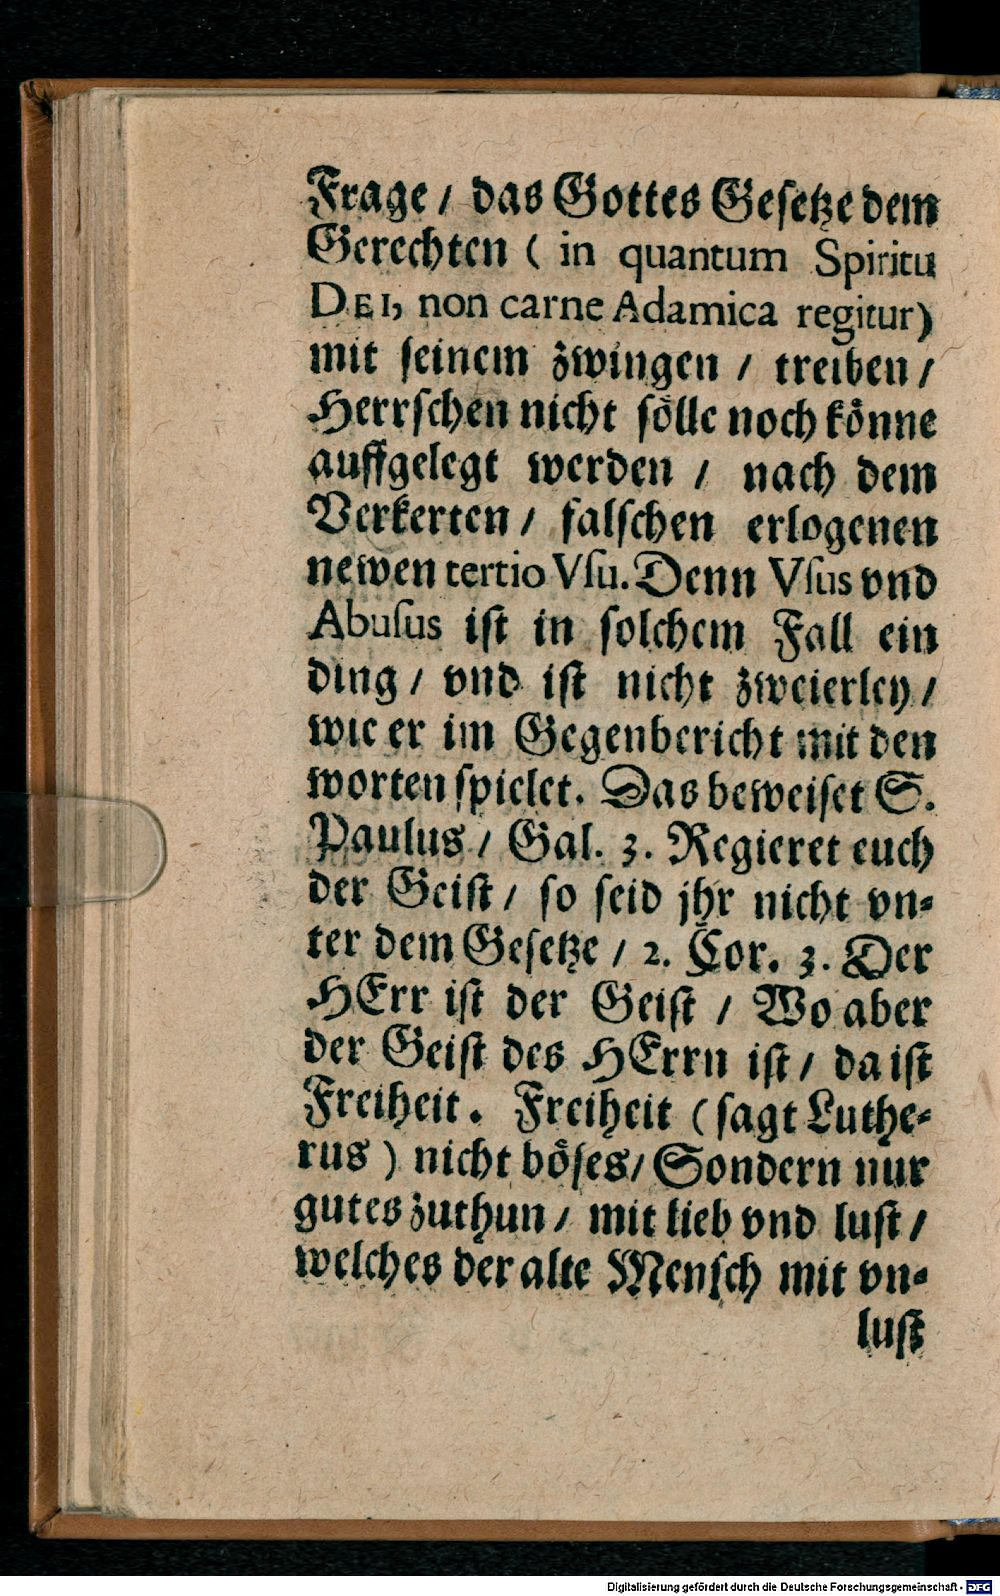 Frage / das Gottes Gesetze dem
Gerechten ( in quantum Spiritu
DEI, non carne Adamica regitur)
mit seinem zwingen / treiben /
Herrschen nicht sölle noch könne
auffgelegt werden / nach dem
Verkerten / falschen erlogenen
newen tertio Vſu. Denn Vſus vnd
Abuſus iſt in ſolchem Fall ein
ding / vnd iſt nicht zweierley /
wie er im Gegenbericht mit den
worten ſpielet. Das beweiſet S.
Paulus / Gal. 3. Regieret euch
der Geiſt / ſo ſeid jhr nicht vn⸗
ter dem Geſetze / 2. Cor. 3. Der
HErr iſt der Geiſt / Wo aber
der Geiſt des HErrn iſt / da iſt
Freiheit. Freiheit ( ſagt Luthe⸗
rus ) nicht böſes / Sondern nur
gutes zuthun / mit lieb vnd luſt /
welches der alte Menſch mit vn⸗
luſt
Digitalisierung gefördert durch die Deutsche Forschungsgemeinschaft - DFG